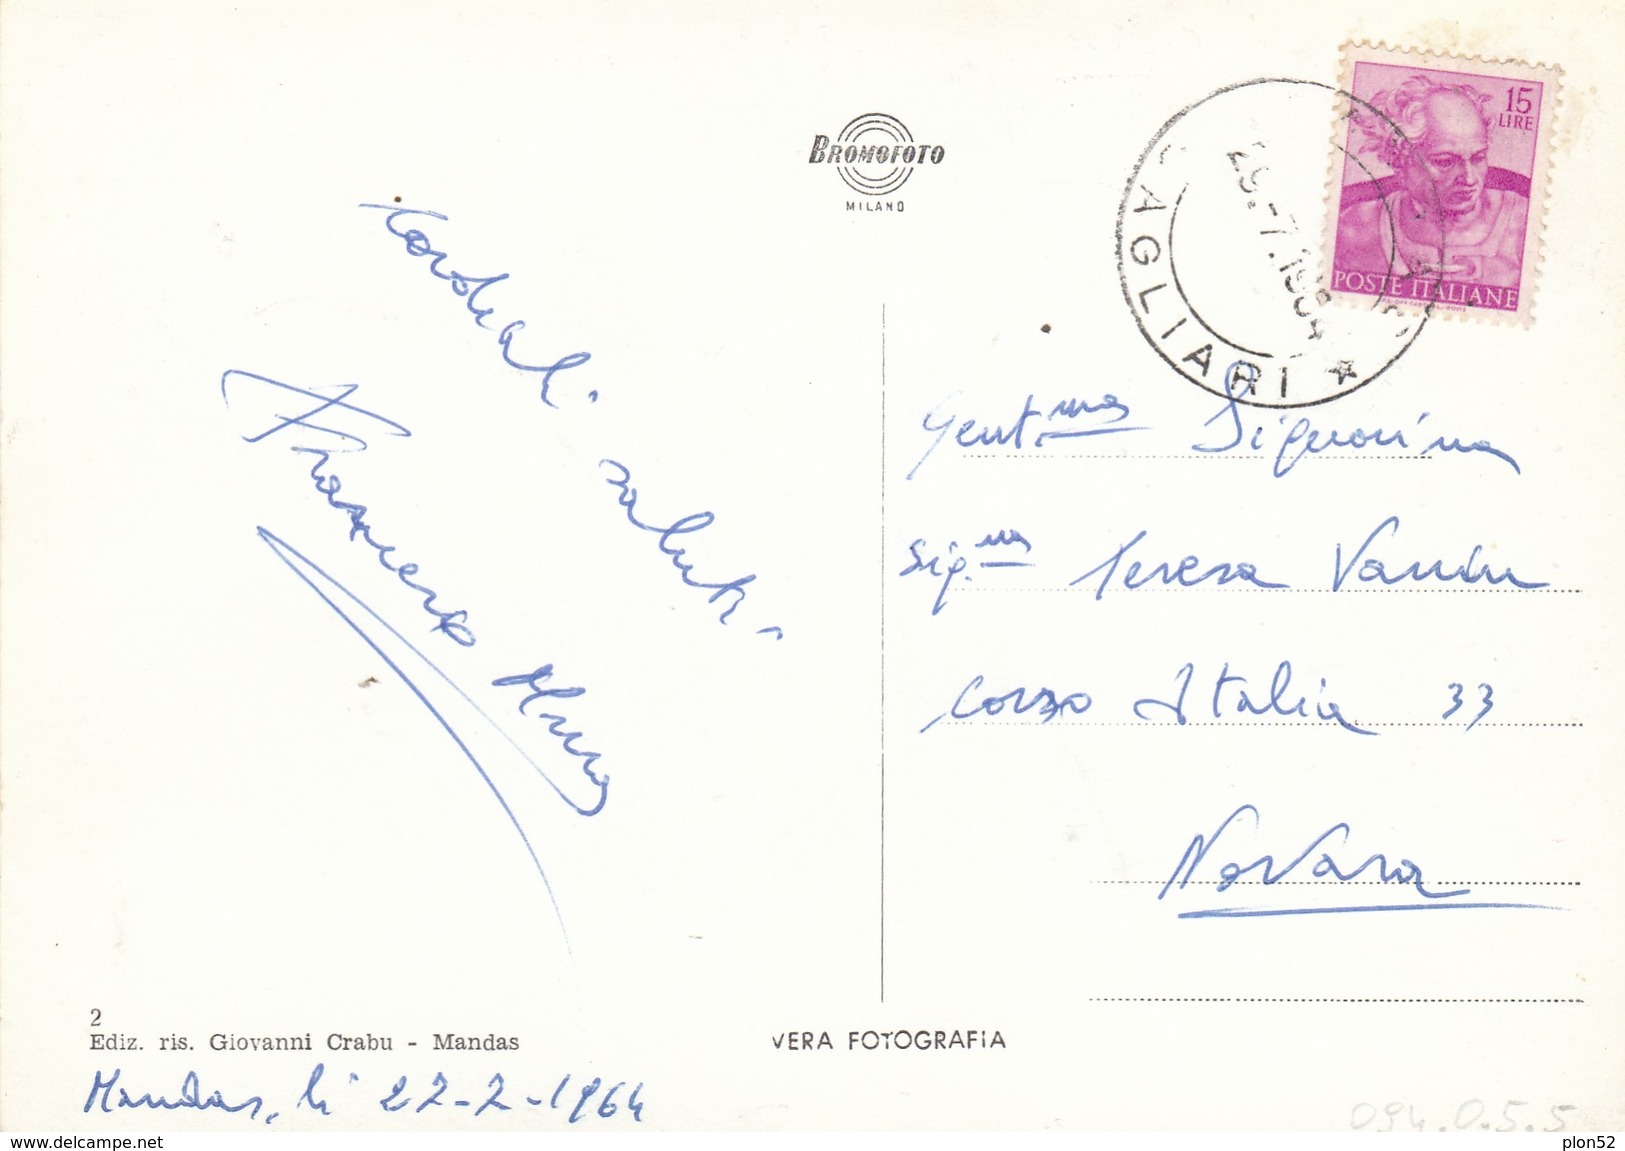 BROMOFOTO
MILANO
15
LIRE
POSTE ITALIANE
CAGLIARI
Cordiali
saluti
Francesco
Gent.ma Signorina
Sig.na Teresa
Corso Italia 33
Novara
2
Ediz. ris. Giovanni Crabu - Mandas
VERA FOTOGRAFIA
Mandas, li 27-7-1964
094.0.5.5
delcampe.net
plon52